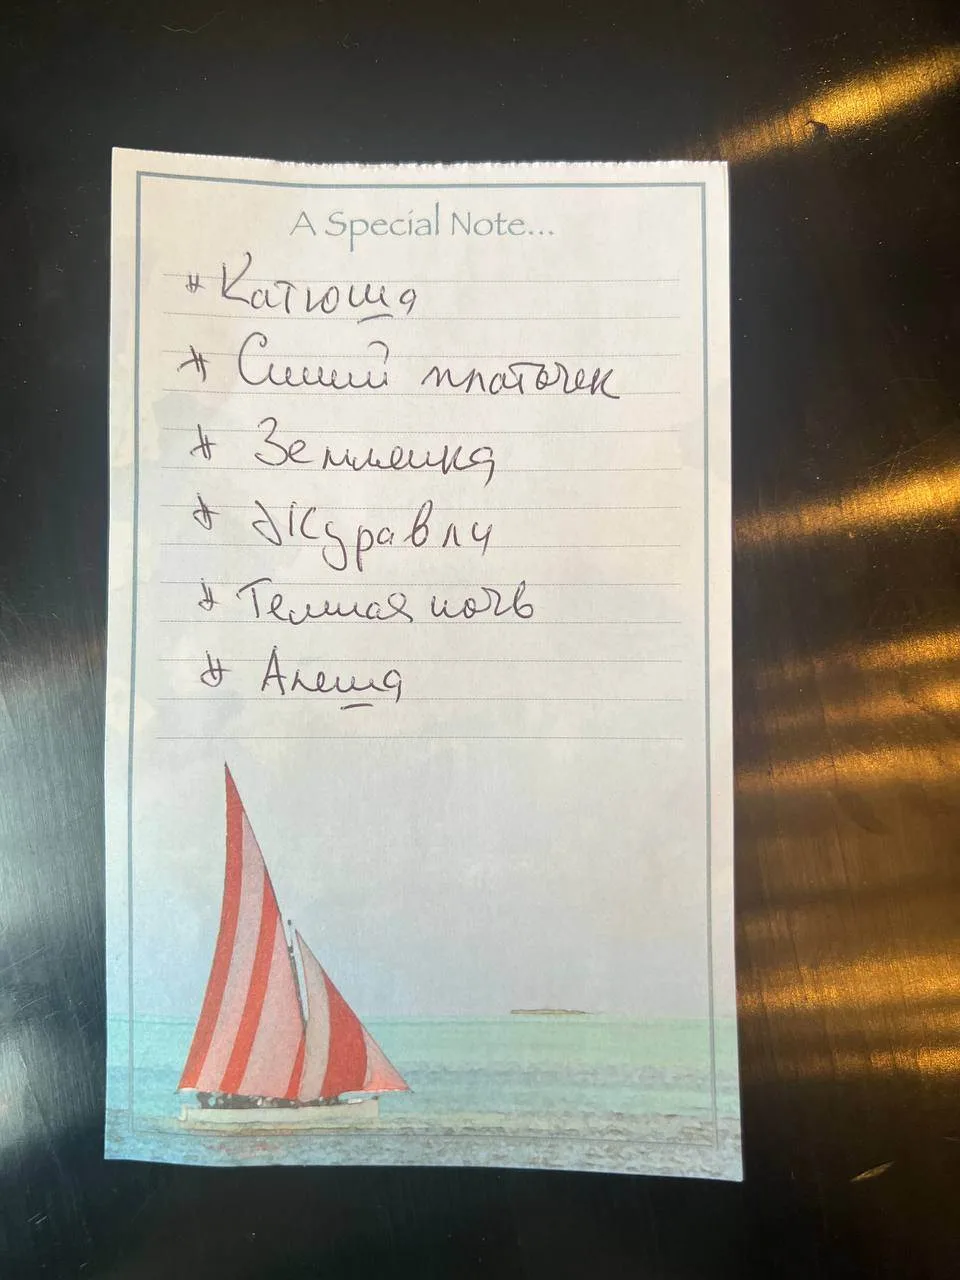 A Special Note...
* Катюша
* Синий платочек
* Землянка
* Журавли
* Темная ночь
* Алеша